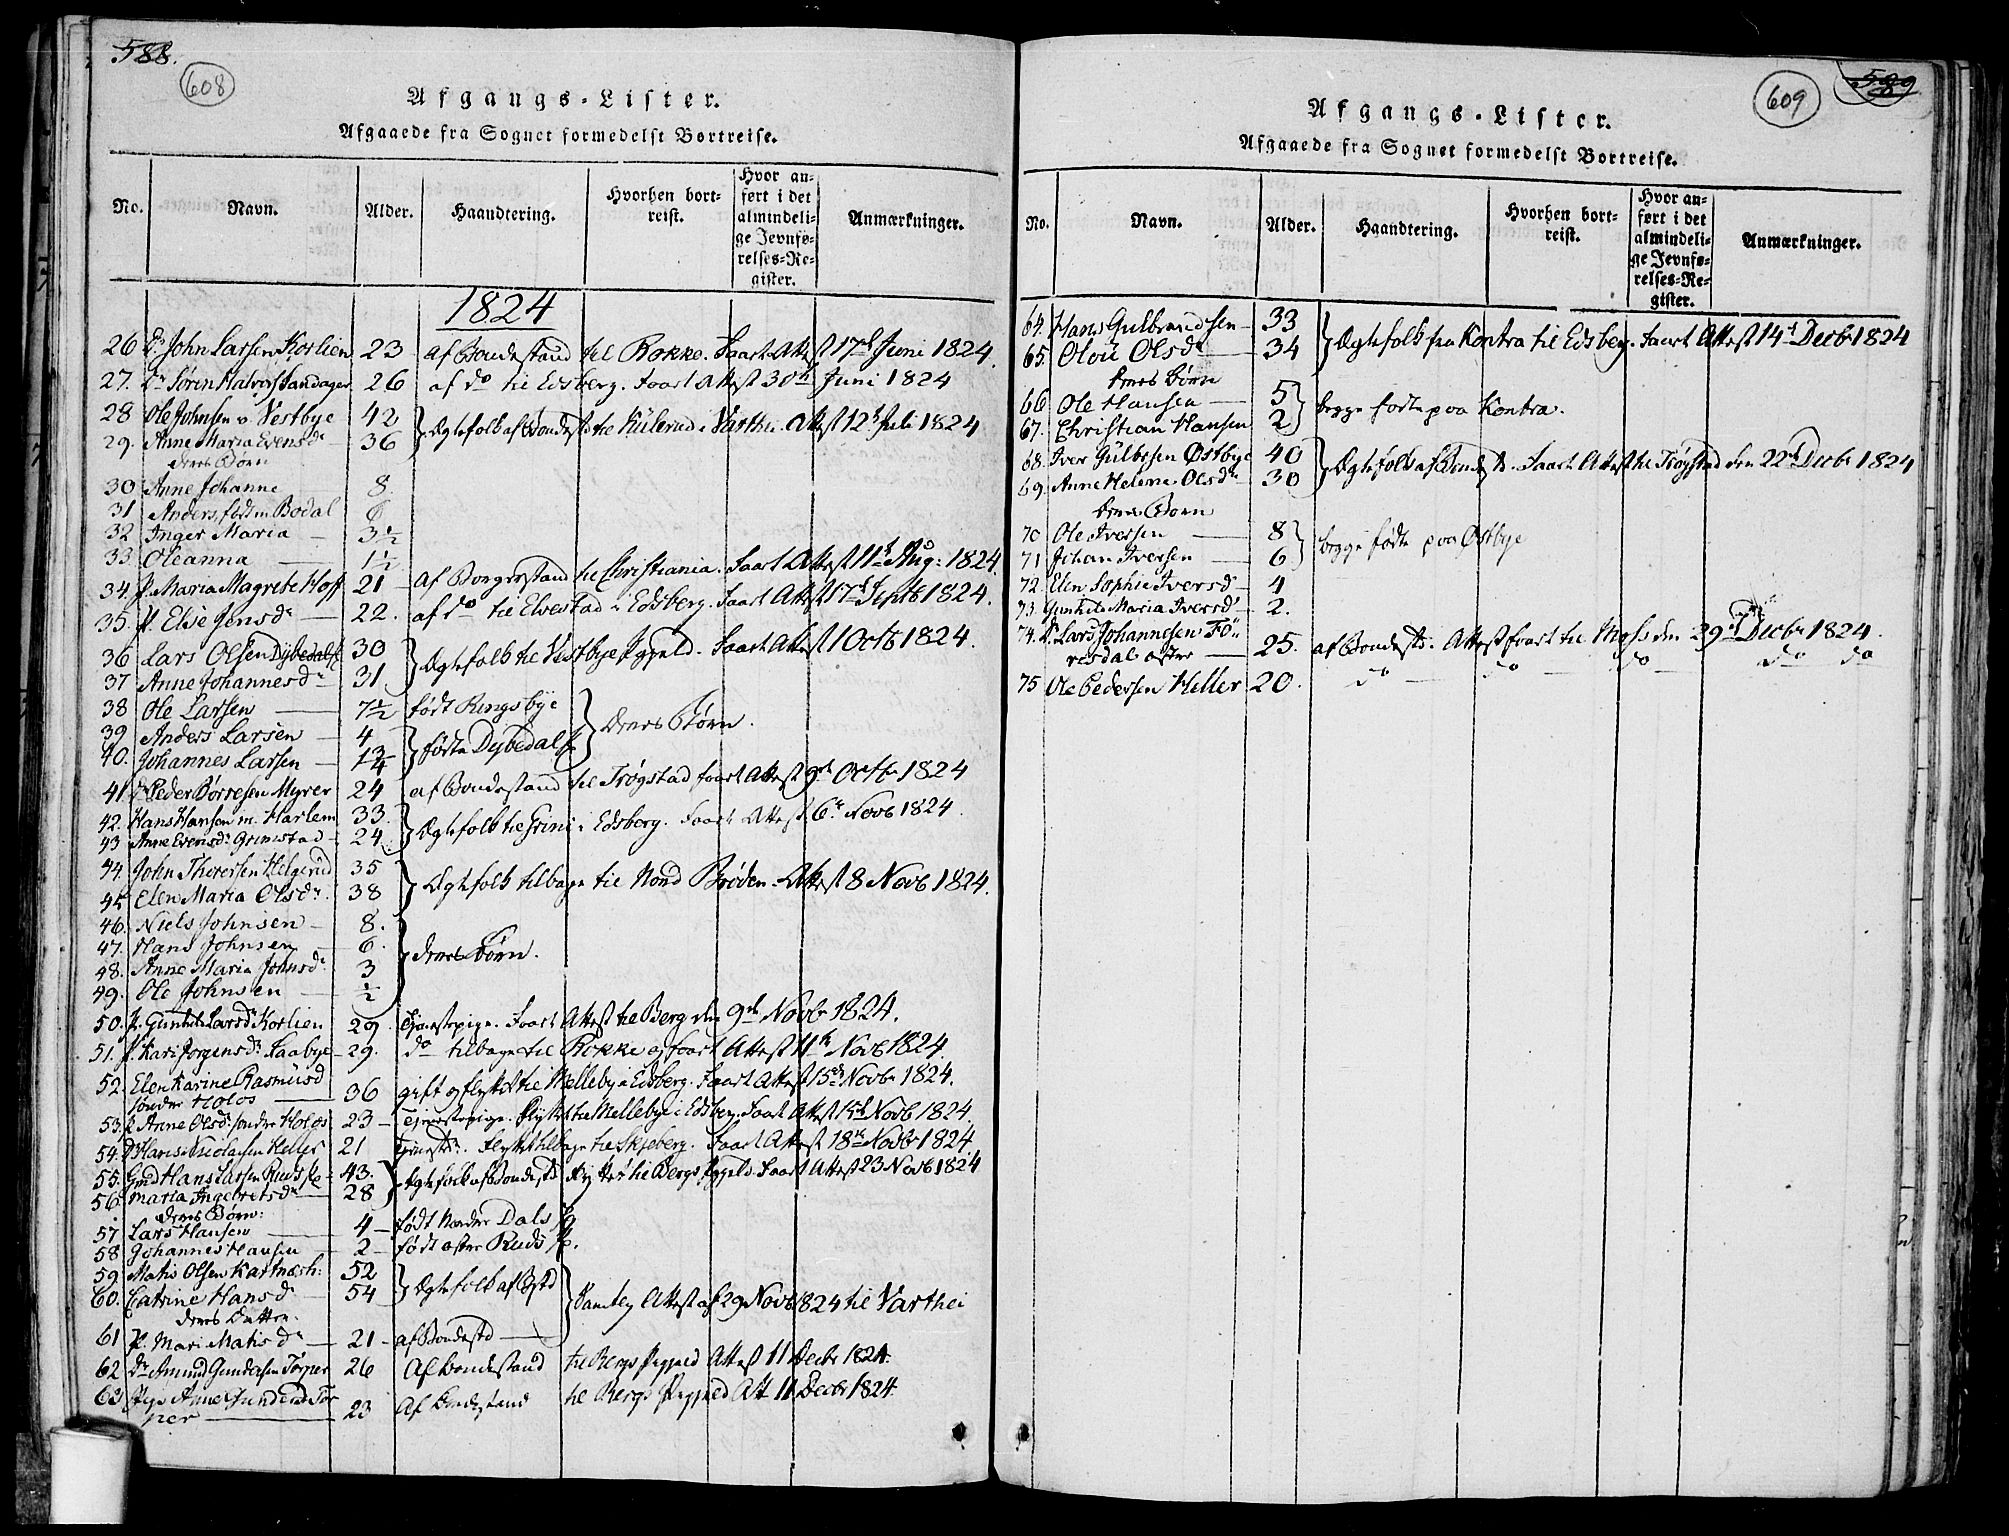 588.
608
Afgangs-Lister.
Afgaaede fra Sognet formedelst Bortreise.
No. Navn. Alder. Haandtering. Hvorhen bortreist. Hvor anført i det almindelige Jevnførelses-Register. Anmærkninger.
1824
26 John Larsen Korlien 23 af Bondestand til Rokke. Faaet Attest 17de Juni 1824.
27. Søren Halvors Sandager 26 af do til Edsberg. Faaet Attest 30te Juni 1824
28 Ole Johnsen v. Vestbye 42 } Ægtefolk af Bondest. til Kulerud i Varthei. Attest 12te Juli 1824
29. Anne Maria Evensdr 36
deres Børn
30 Anne Johanne 8.
31 Anders, født m Bodal 6
32 Inger Maria 3½
33 Oleanna 1½
34. P. Maria Magrete Hoff 21 af Borgerstand til Christiania. Faaet Attest 11te Aug: 1824.
35. P. Elie Jensdr 22. af do til Elvestad i Edsberg. Faaet Attest 17de Septb 1824.
36 Lars Olsen Dybedals 30 } Ægtefolk til Vestbye Pgjeld. Faaet Attest 1 Octb 1824.
37 Anne Johannesdr 31
38 Ole Larsen 7½ født Ringsbye } deres Børn.
39 Anders Larsen 4 } fødte Dybedals
40. Johannes Larsen 1¾
41 Peder Børresen Myrer 24 af Bondestand til Trøgstad faaet Attest 9de Octbr 1824
42. Hans Hansen m. Harlem 33. } Ægtefolk til Grini i Edsberg. Faaet Attest 6te Novb 1824.
43 Anne Evensdr Grimstad 24.
44. John Thoresen Helgerud 35 } Ægtefolk tilbage til Nord Brøden. Attest 8 Novb 1824.
45 Elen Maria Olsdr. 38
46. Niels Johnsen 8. } deres Børn.
47. Hans Johnsen 6.
48. Anne Maria Johnsdr 3
49. Ole Johnsen ½
50. P. Gunhild Larsdr Korlien 29. Tjenestepige. Faaet Attest til Berg den 9de Novbr 1824.
51. P. Kari Jørgensdr Saabye 29. do tilbage til Rokke og faaet Attest 11te Novb 1824.
52. Elen Karine Rasmusd
søndre Holøs 36 gift og flyttet til Mellebye i Edsberg. Faaet Attest 15de Novbr 1824.
53. Anne Olsdr søndre Holøs 23 Tjenestepige. Flyttet til Mellebye i Edsberg. Faaet Attest 15de Novb 1824.
54. Hans Nicolaisen Heller 21 Tjenestdr. Flyttet tilbage til Skjeberg. Faaet Attest 18de Novbr 1824
55. Gmd Hans Larsen Ruds 43. } Ægtefolk af Bondestd flytter til Bergs Pgjeld. Faaet Attest 23 Novb 1824
56. Maria Ingebretsdr 28
deres Børn:
57 Lars Hansen 4 født Nordre Dals
58 Johannes Hansen 2 født østre Ruds
59 Matis Olsen Kartnæsh: 52 } Ægtefolk af Bstd } Samtlig Attest af 29 Novb 1824 til Varthei
60. Catrine Hansdr 54
deres Datter
61 P. Mari Matisdr 21 af Bondestd
62 Dr Amund Gundersen Torper 26 Af Bondestand til Bergs Pgjeld Attest 11 Decbr 1824.
63 Pige Anne Gundersd Tor
per 23 Af Bondestand til Bergs Pgjeld Att 11 Decbr 1824.
589
609
Afgangs-Lister.
Afgaaede fra Sognet formedelst Bortreise.
No. Navn. Alder. Haandtering. Hvorhen bortreist. Hvor anført i det almindelige Jevnførelses-Register. Anmærkninger.
64. Hans Gulbrandsen 33 } Ægtefolk fra Kontra til Edsberg. Faaet Attest 14de Decbr 1824
65. Olou Olsdr 34
deres Børn
66 Ole Hansen 5 } begge fødte paa Kontra.
67. Christian Hansen 2
68. Iver Gulbrsen Østbye 40 } Ægtefolk af Bondest. Faaet Attest til Trøgstad den 22de Decbr 1824
69. Anne Helene Olsdr 30
deres Børn
70 Ole Iversen 8 } begge fødte paa Østbye
71 Johan Iversen 6
72. Elen Sophie Iversd 4
73. Gunhild Maria Iversdr 2.
74. Dr Lars Johannesen Fo-
resdal østre 25. af Bondestd. Attest faaet til Moss den 29de Decbr 1824.
75 Ole Pedersen Heller 20. do do do do do